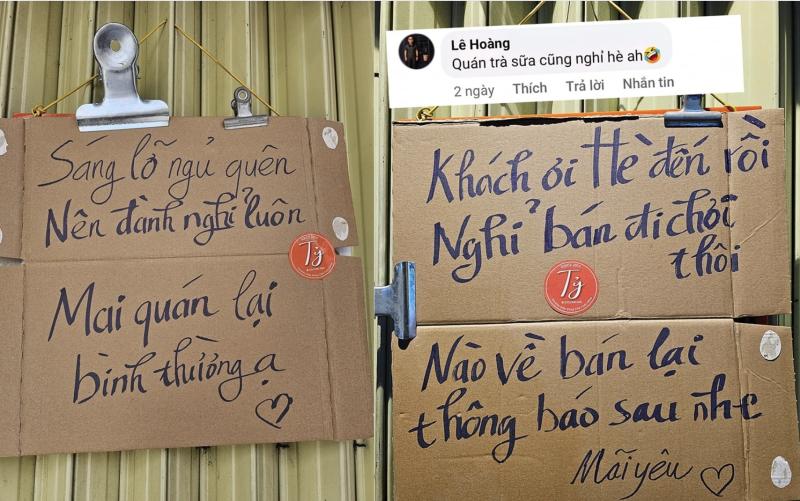 Sáng lỡ ngủ quên
Nên đành nghỉ luôn
Tý
Mai quán lại
bình thường ạ
Lê Hoàng
Quán trà sữa cũng nghỉ hè ah🤣
2 ngày Thích Trả lời Nhắn tin
Khách ơi Hè đến rồi
Nghỉ bán đi chơi
thôi
Tý
Nào về bán lại
thông báo sau nhe
Mãi yêu